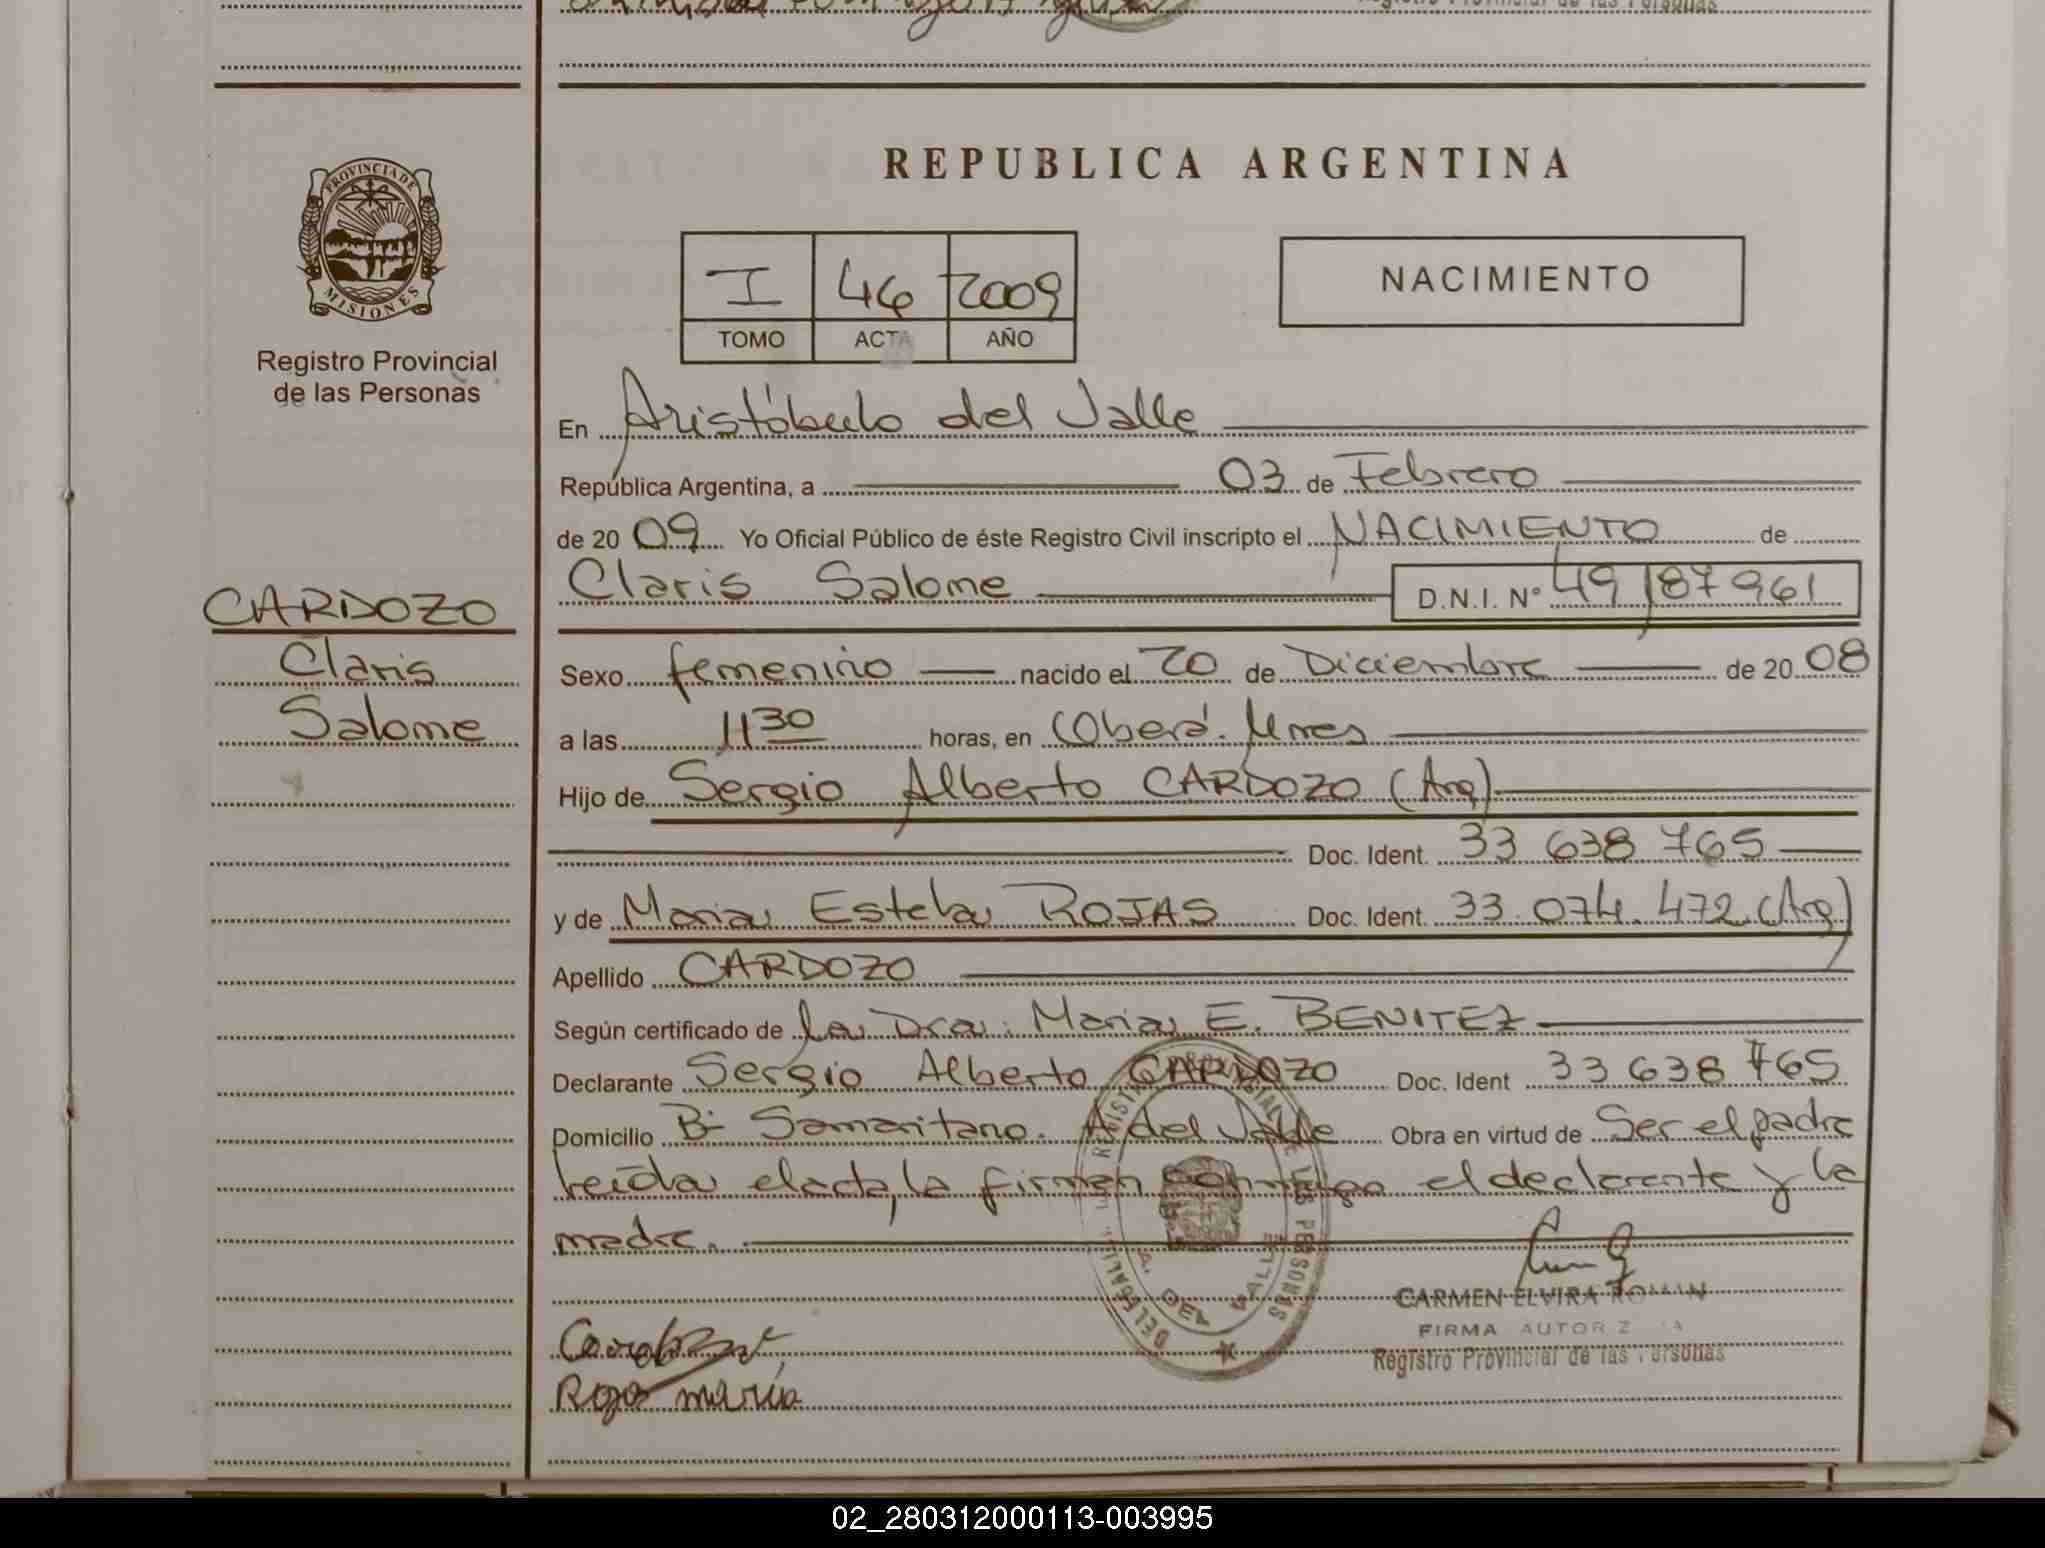 REPUBLICA ARGENTINA
PROVINCIA DE MISIONES
Registro Provincial
de las Personas
I 46 2009
TOMO ACTA AÑO
NACIMIENTO
En Aristóbulo del Valle
República Argentina, a 03 de Febrero
de 20 09 Yo Oficial Público de éste Registro Civil inscripto el NACIMIENTO de
Claris Salome D.N.I. N° 49187961
CARDOZO
Claris
Salome
Sexo femenino nacido el 20 de Diciembre de 20 08
a las 11 30 horas, en Oberá. Mnes
Hijo de Sergio Alberto CARDOZO (Arg)
Doc. Ident. 33 638 765
y de Maria Estela ROJAS Doc. Ident. 33.074.472 (Arg)
Apellido CARDOZO
Según certificado de la Dra. Maria E. BENITEZ
Declarante Sergio Alberto CARDOZO Doc. Ident 33 638 765
Domicilio B- Samaritano. A del Valle Obra en virtud de Ser el padre
Leída el acta, la firman conmigo el declarante y la
madre.
REGISTRO PROVINCIAL DE LAS PERSONAS
DELEGACION
A. DEL VALLE
CARMEN ELVIRA ROMAN
FIRMA AUTORIZADA
Registro Provincial de las Personas
Rojas maría
02_280312000113-003995